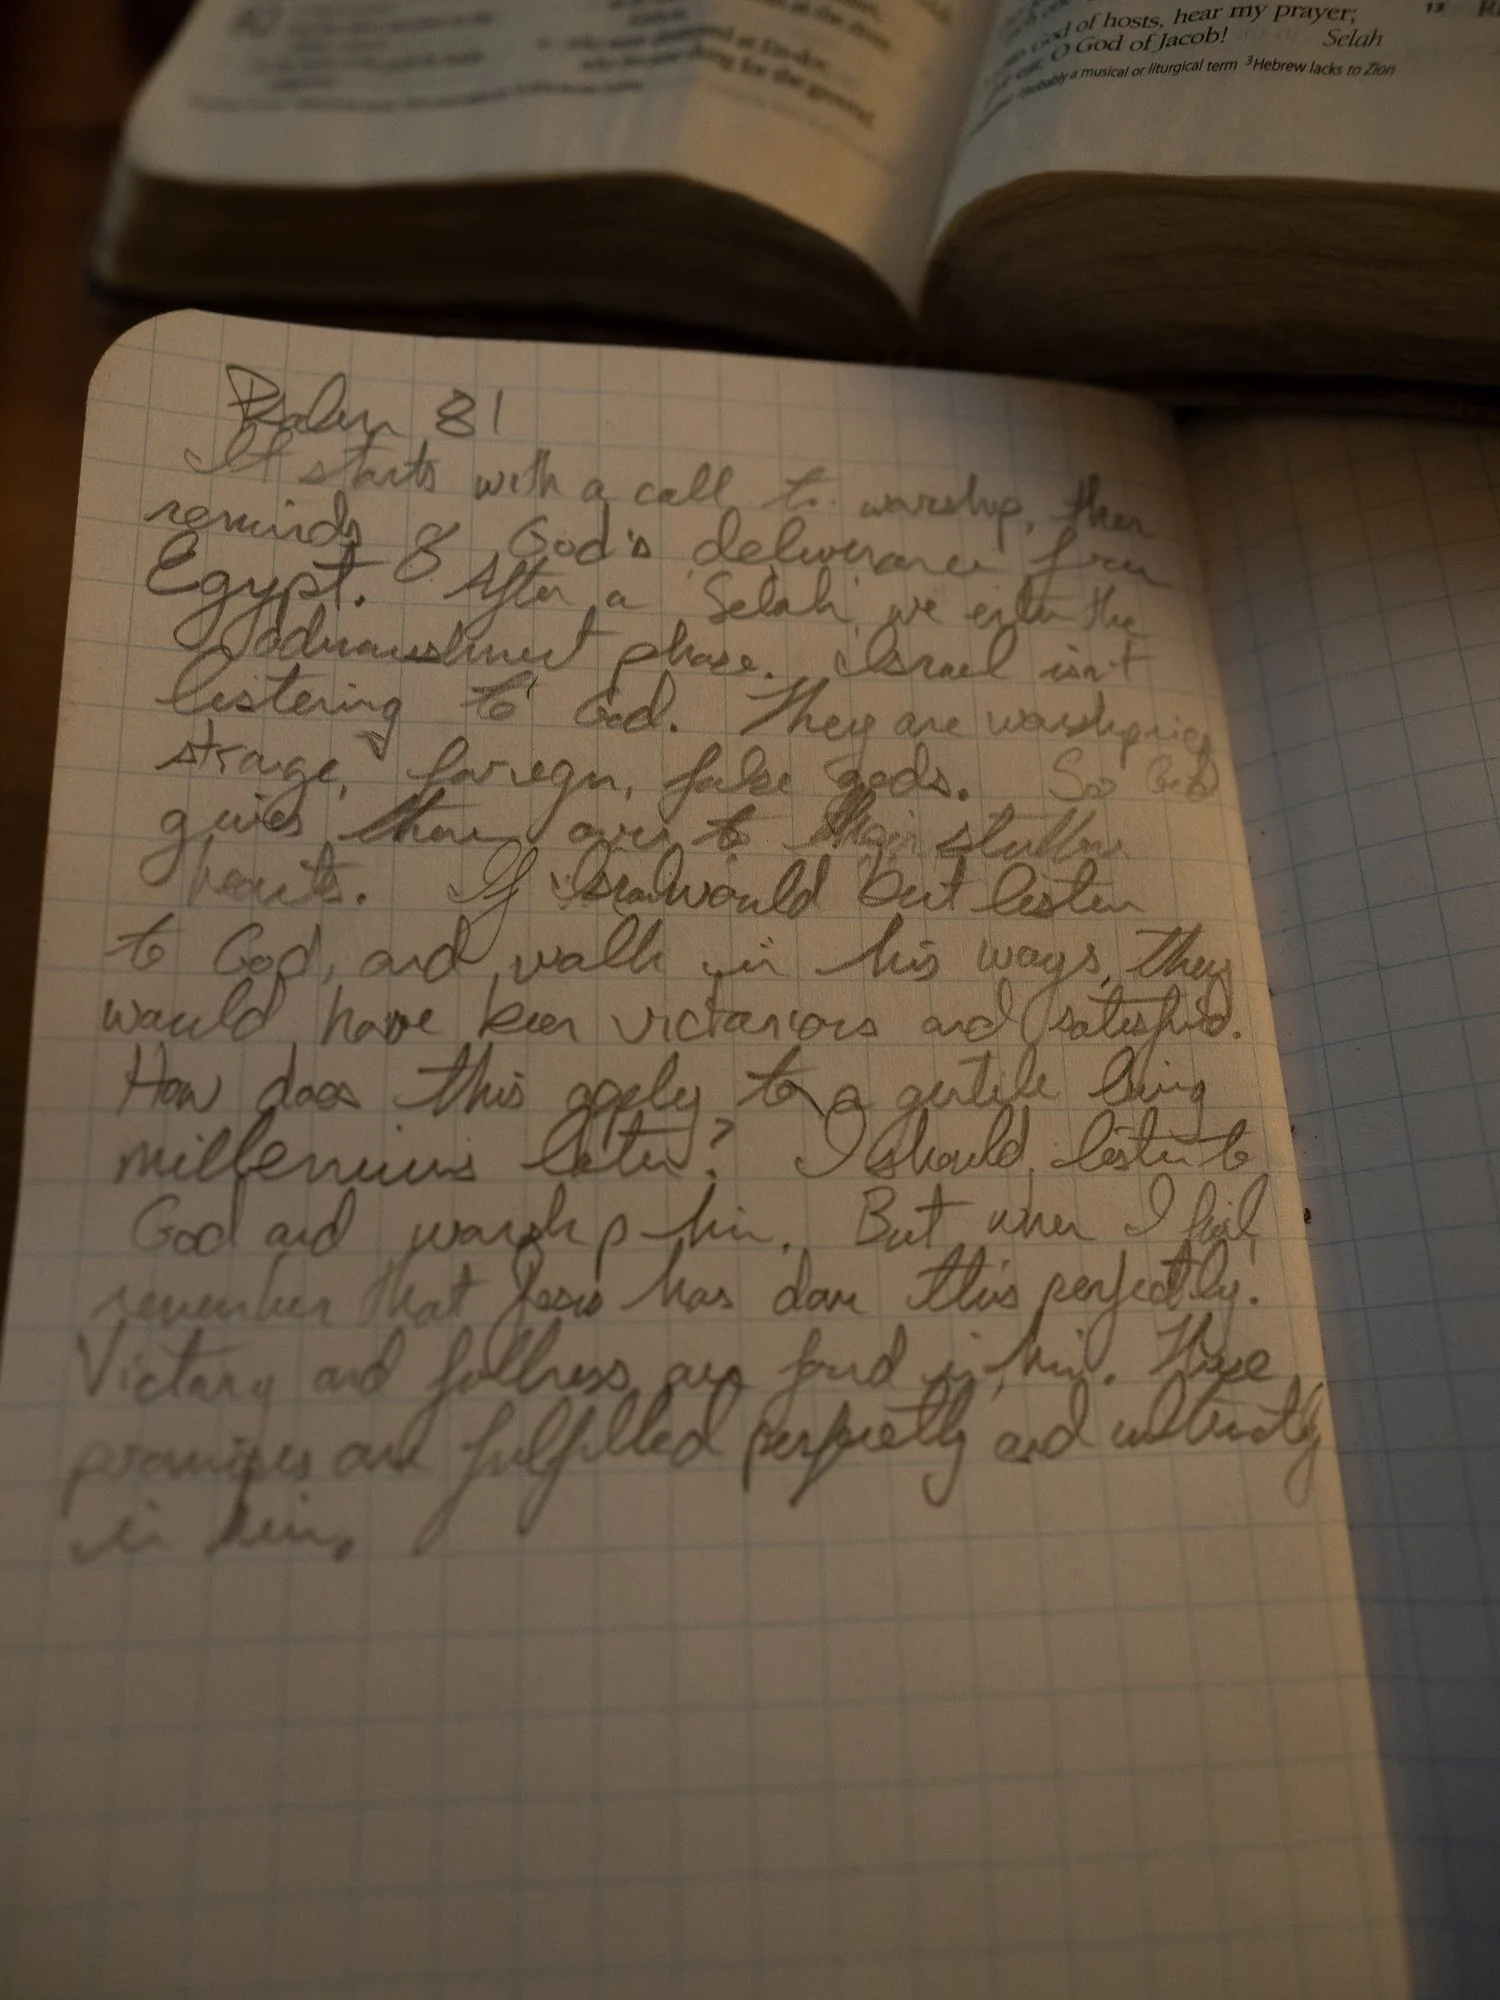 God of hosts, hear my prayer;
O God of Jacob! Selah
a musical or liturgical term 3Hebrew lacks to Zion
13
at En-dor,
for the ground.
Psalm 81
It starts with a call to worship, then
reminds of God's deliverance from
Egypt. After a Selah we enter the
admonishment phase. Israel isn't
listening to God. They are worshiping
strange, foreign, false gods. So God
gives them over to their stubborn
hearts. If Israel would but listen
to God, and walk in his ways, they
would have been victorious and satisfied.
How does this apply to a gentile living
millennium later? I should listen to
God and worship him. But when I fail,
remember that Jesus has done this perfectly.
Victory and fullness are found in him. These
promises are fulfilled perfectly and ultimately
in him.